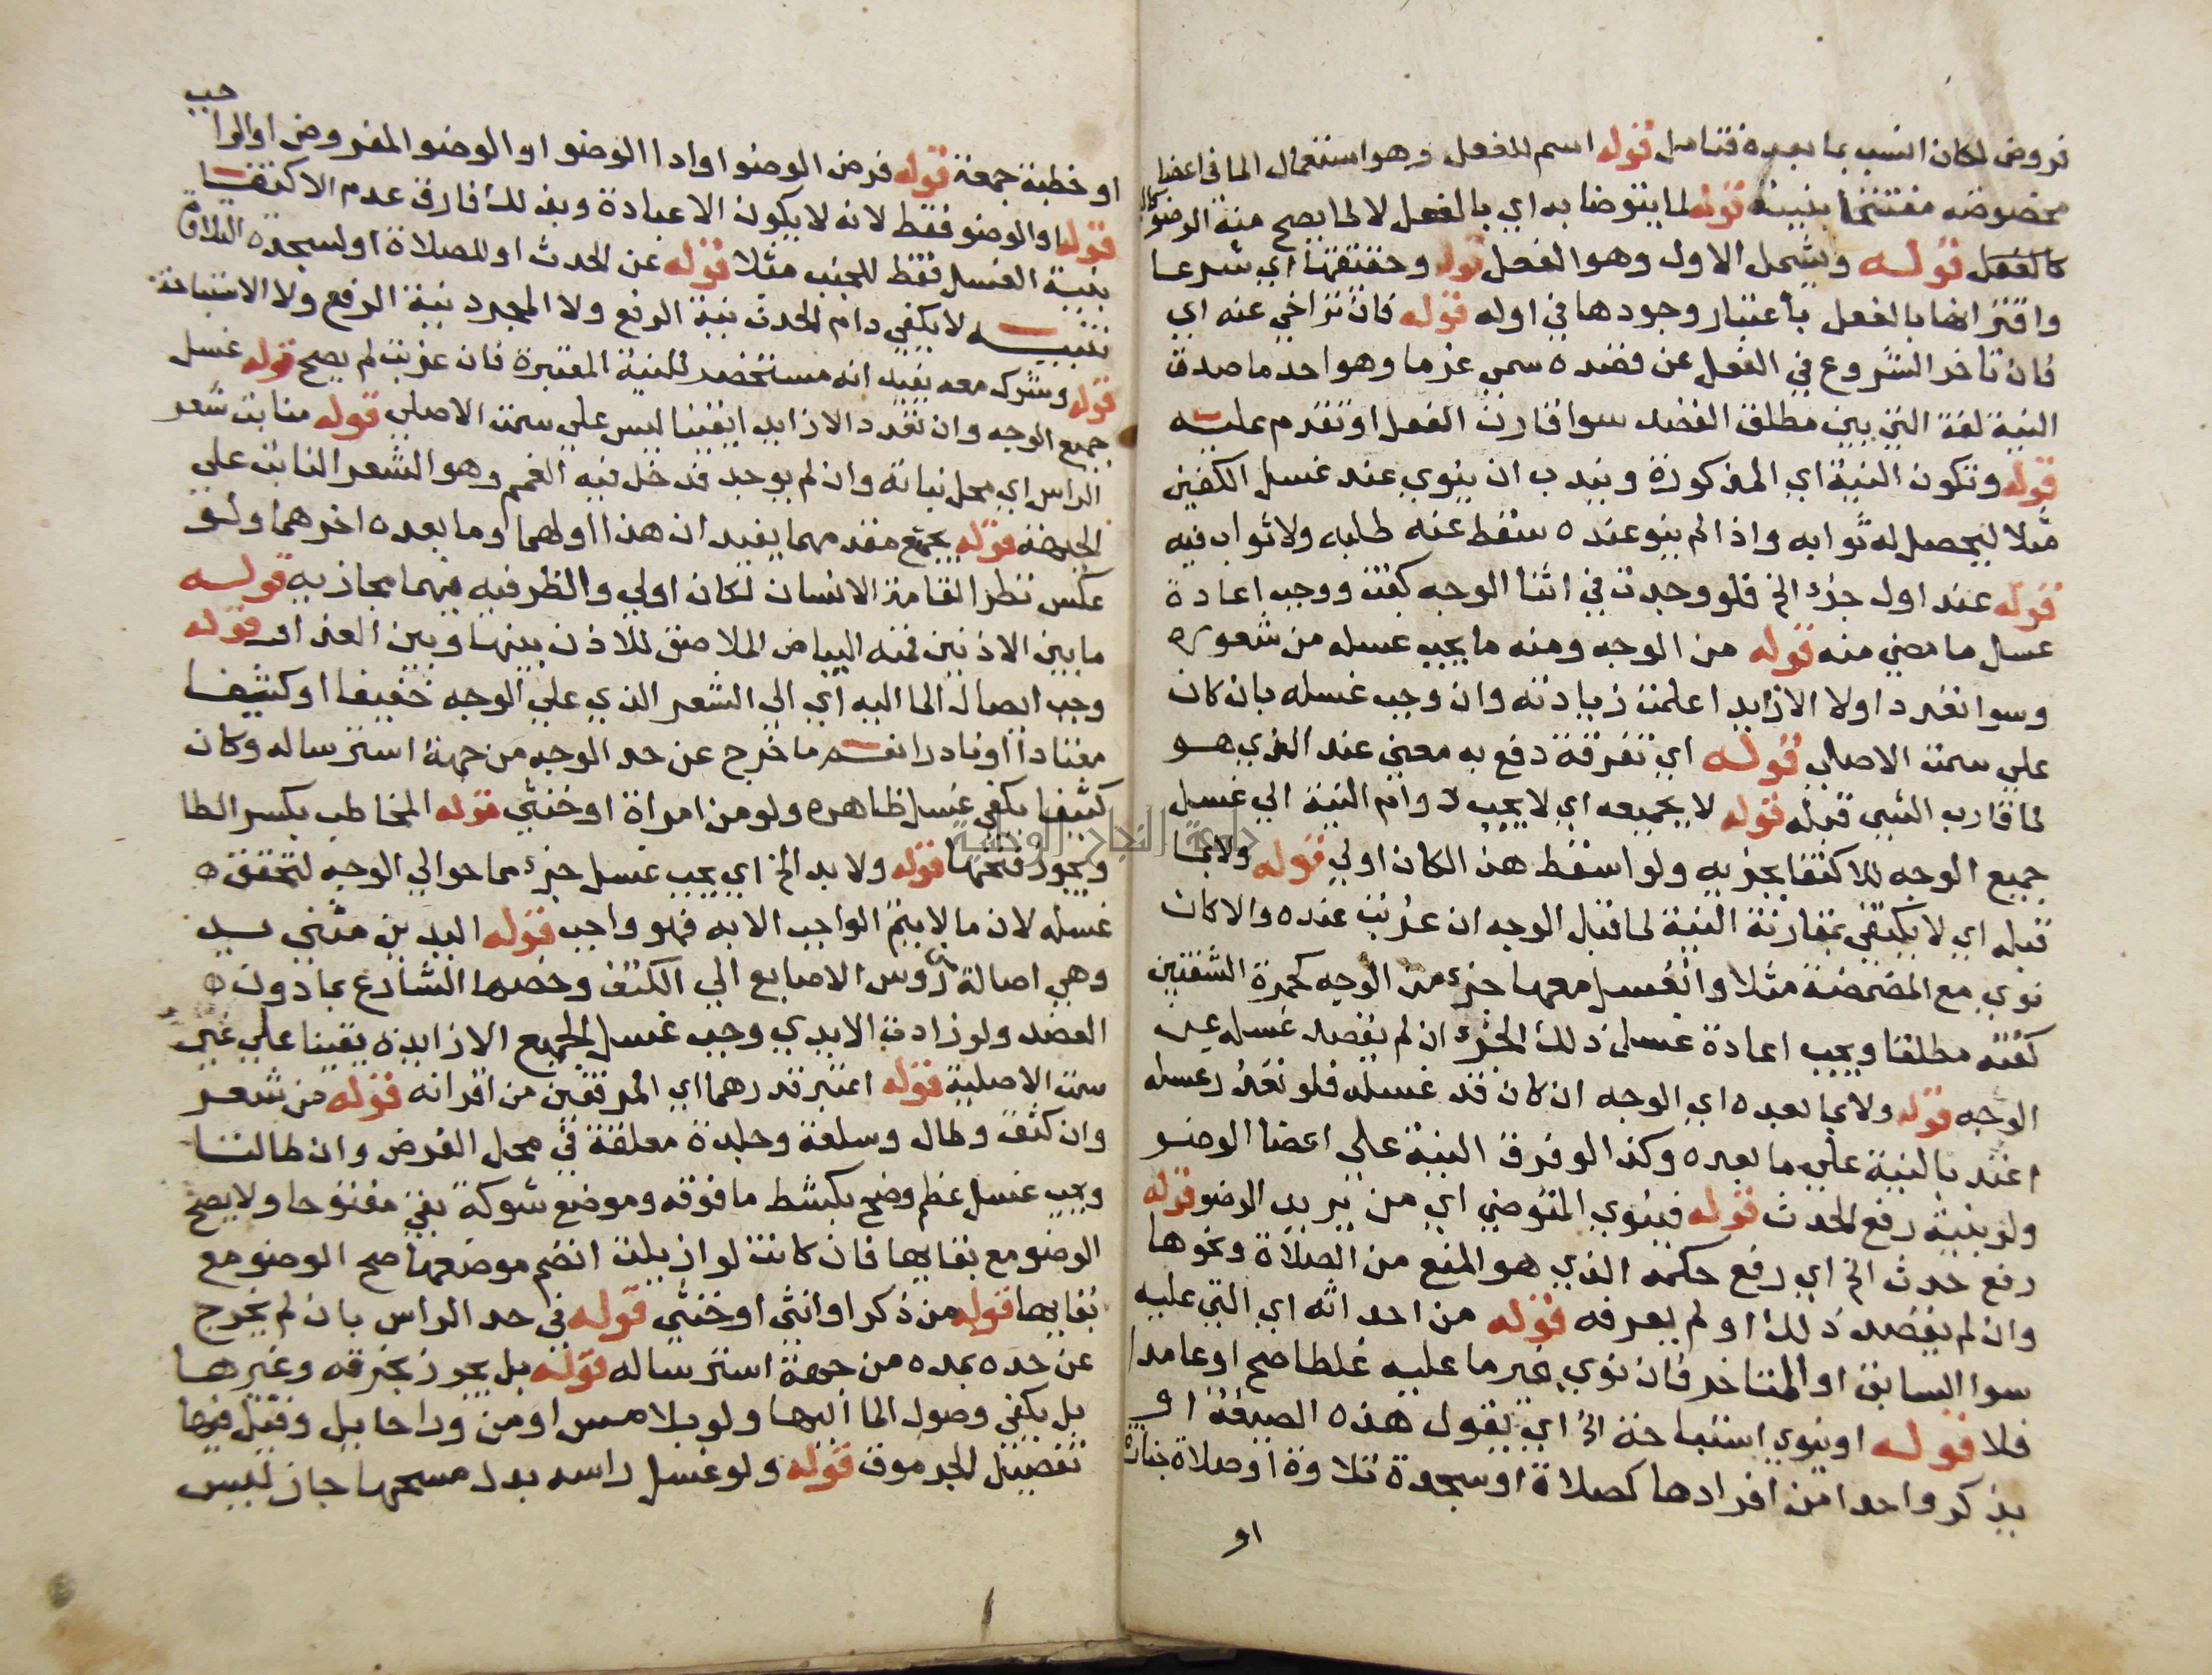 فروض لكان انسب بما بعده فتامل قوله اسم للفعل وهو استعمال الما في اعضا
مخصوصة مفتتحا بنية قوله لما يتوضا به اي بالفعل لا لما يصح منه الوضو كالـ
كالفعل قوله ويشمل الاول وهو الفعل قوله وحقيقتها اي شرعا
واقترانها بالفعل باعتبار وجودها في اوله قوله فان تراخي عنه اي
فان تاخر الشروع في الفعل عن قصده سمي عزما وهو احد ما صدق
النية لغة التي بين مطلق القصد سوا قارن الفعل او تقدم عليه
قوله وتكون النية اي المذكورة ويندب ان ينوي عند غسل الكفين
مثلا ليحصل له ثوابه واذا لم ينو عنده سقط عنه طلبه ولا ثواب فيه
قوله عند اول جزء الخ فلو وجدت في اثنا الوجه كفت ووجب اعادة
غسل ما مضي منه قوله من الوجه ومنه ما يجب غسله من شعوره
وسوا انفرد اولا الا زايد اعلمت زيادته وان وجب غسله بان كان
علي سمت الاصلي قوله اي تفرقة دفع به معني عند الذي هو
لما قارب الشي قبله قوله لا بجميعه اي لا يجب دوام النية الي غسل
جميع الوجه للاكتفا بجزيه ولو اسقط هذا لكان اولي قوله ولا بما
قبله اي لا يكتفي بمقارنة النية لما قبل الوجه ان عزبت عنده والا كان
نوي مع المضمضة مثلا وانغسل معها جزء من الوجه كحمرة الشفتين
كفته مطلقا ويجب اعادة غسل ذلك الجزء ان لم يقصد غسله عن
الوجه قوله ولا بما بعده اي الوجه ان كان قد غسله فلو تعذر غسله
اعتد بالنية علي ما بعده وكذا لو فرق النية علي اعضا الوضو
ولو بنية رفع الحدث قوله فينوي المتوضي اي من يريد الوضو قوله
رفع حدث الخ اي رفع حكمه الذي هو المنع من الصلاة ونحوها
وان لم يقصد ذلك او لم يعرفه قوله من احداثه اي التي عليه
سوا السابق او المتاخر فان نوي غير ما عليه غلطا صح او عامدا
فلا قوله او ينوي استباحة الخ اي يقول هذه الصيغة او
بذكر واحدا من افرادها كصلاة او سجدة تلاوة او صلاة جنازة
او
او خطبة جمعة قوله فرض الوضو او ادا الوضو او الوضو المفروض او الواجب
قوله او الوضو فقط لانه لا يكون الا عبادة وبذلك فارق عدم الاكتفا
بنية الغسل فقط للجنب مثلا قوله عن الحدث او للصلاة او لسجدة التلاوة
تنبيه لا يكفي دايم الحدث نية الرفع ولا المجرد نية الرفع ولا الاستباحة
قوله وشرك معه يفيد انه مستحضر للنية المعتبرة فان عزبت لم يصح قوله غسل
جميع الوجه وان تعدد الا زايد ايقينا ليس علي سمت الاصلي قوله منابت شعر
الراس اي محل نباته وان لم يوجد فدخل فيه الغمم وهو الشعر النابت علي
الجبهة قوله مجتمع مقدمهما يفيد ان هذا اولهما وما بعده اخرهما ولو
عكس نظرا لقامة الانسان لكان اولي والظرفيه فيهما مجازيه قوله
ما بين الاذنين فمنه البياض الملاصق للاذن بينها وبين العذار قوله
وجب ايصال الما اليه اي الي الشعر الذي علي الوجه خفيفا او كثيفا
معتادا او نادرا نعم ما خرج عن حد الوجه من جهة استرساله وكان
كثيفا يكفي غسل ظاهره ولو من امراة او خنثي قوله المخاطب بكسر الطا
ويجوز فتحها قوله ولا بد الخ اي يجب غسل جزء مما حوالي الوجه لتحقق
غسله لان ما لا يتم الواجب الا به فهو واجب قوله اليدين مثني يد
وهي اصالة من رؤس الاصابع الي الكتف وخصها الشارع بما دون
العضد ولو زادت الايدي وجب غسل الجميع الا زايدة يقينا علي غير
سمت الاصلية قوله اعتبر قدرهما اي المرفقين من اقرانه قوله من شعر
وان كثف وطال وسلعة وجلدة معلقة في محل الفرض وان طالتا
ويجب غسل عظم وضح بكشط ما فوقه وموضع شوكة بقي مفتوحا ولا يصح
الوضو مع بقايها فان كانت لو ازيلت انضم موضعها صح الوضو مع
بقايها قوله من ذكر او انثي او خنثي قوله في حد الراس بان لم يخرج
عن حده بمده من جهة استرساله قوله بل يجوز بخرقه وغيرها
بل يكفي وصول الما اليها ولو بلا مس او من ورا حايل وقيل فيها
تفصيل الجرموق قوله ولو غسل راسه بدل مسحها جاز ليس
جامعة النجاح الوطنية